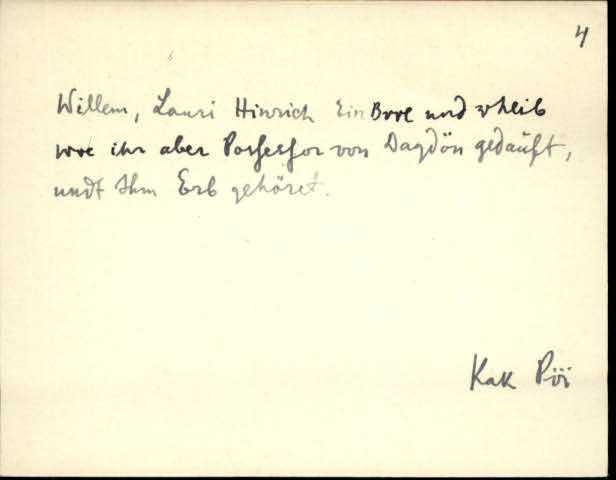 4
Willem, Lauri Hinrich Ein Broe und
woe ihr aber Possessor von Dagdön gedaüft,
undt Ihm Erb gehöret.
Kak Pöi